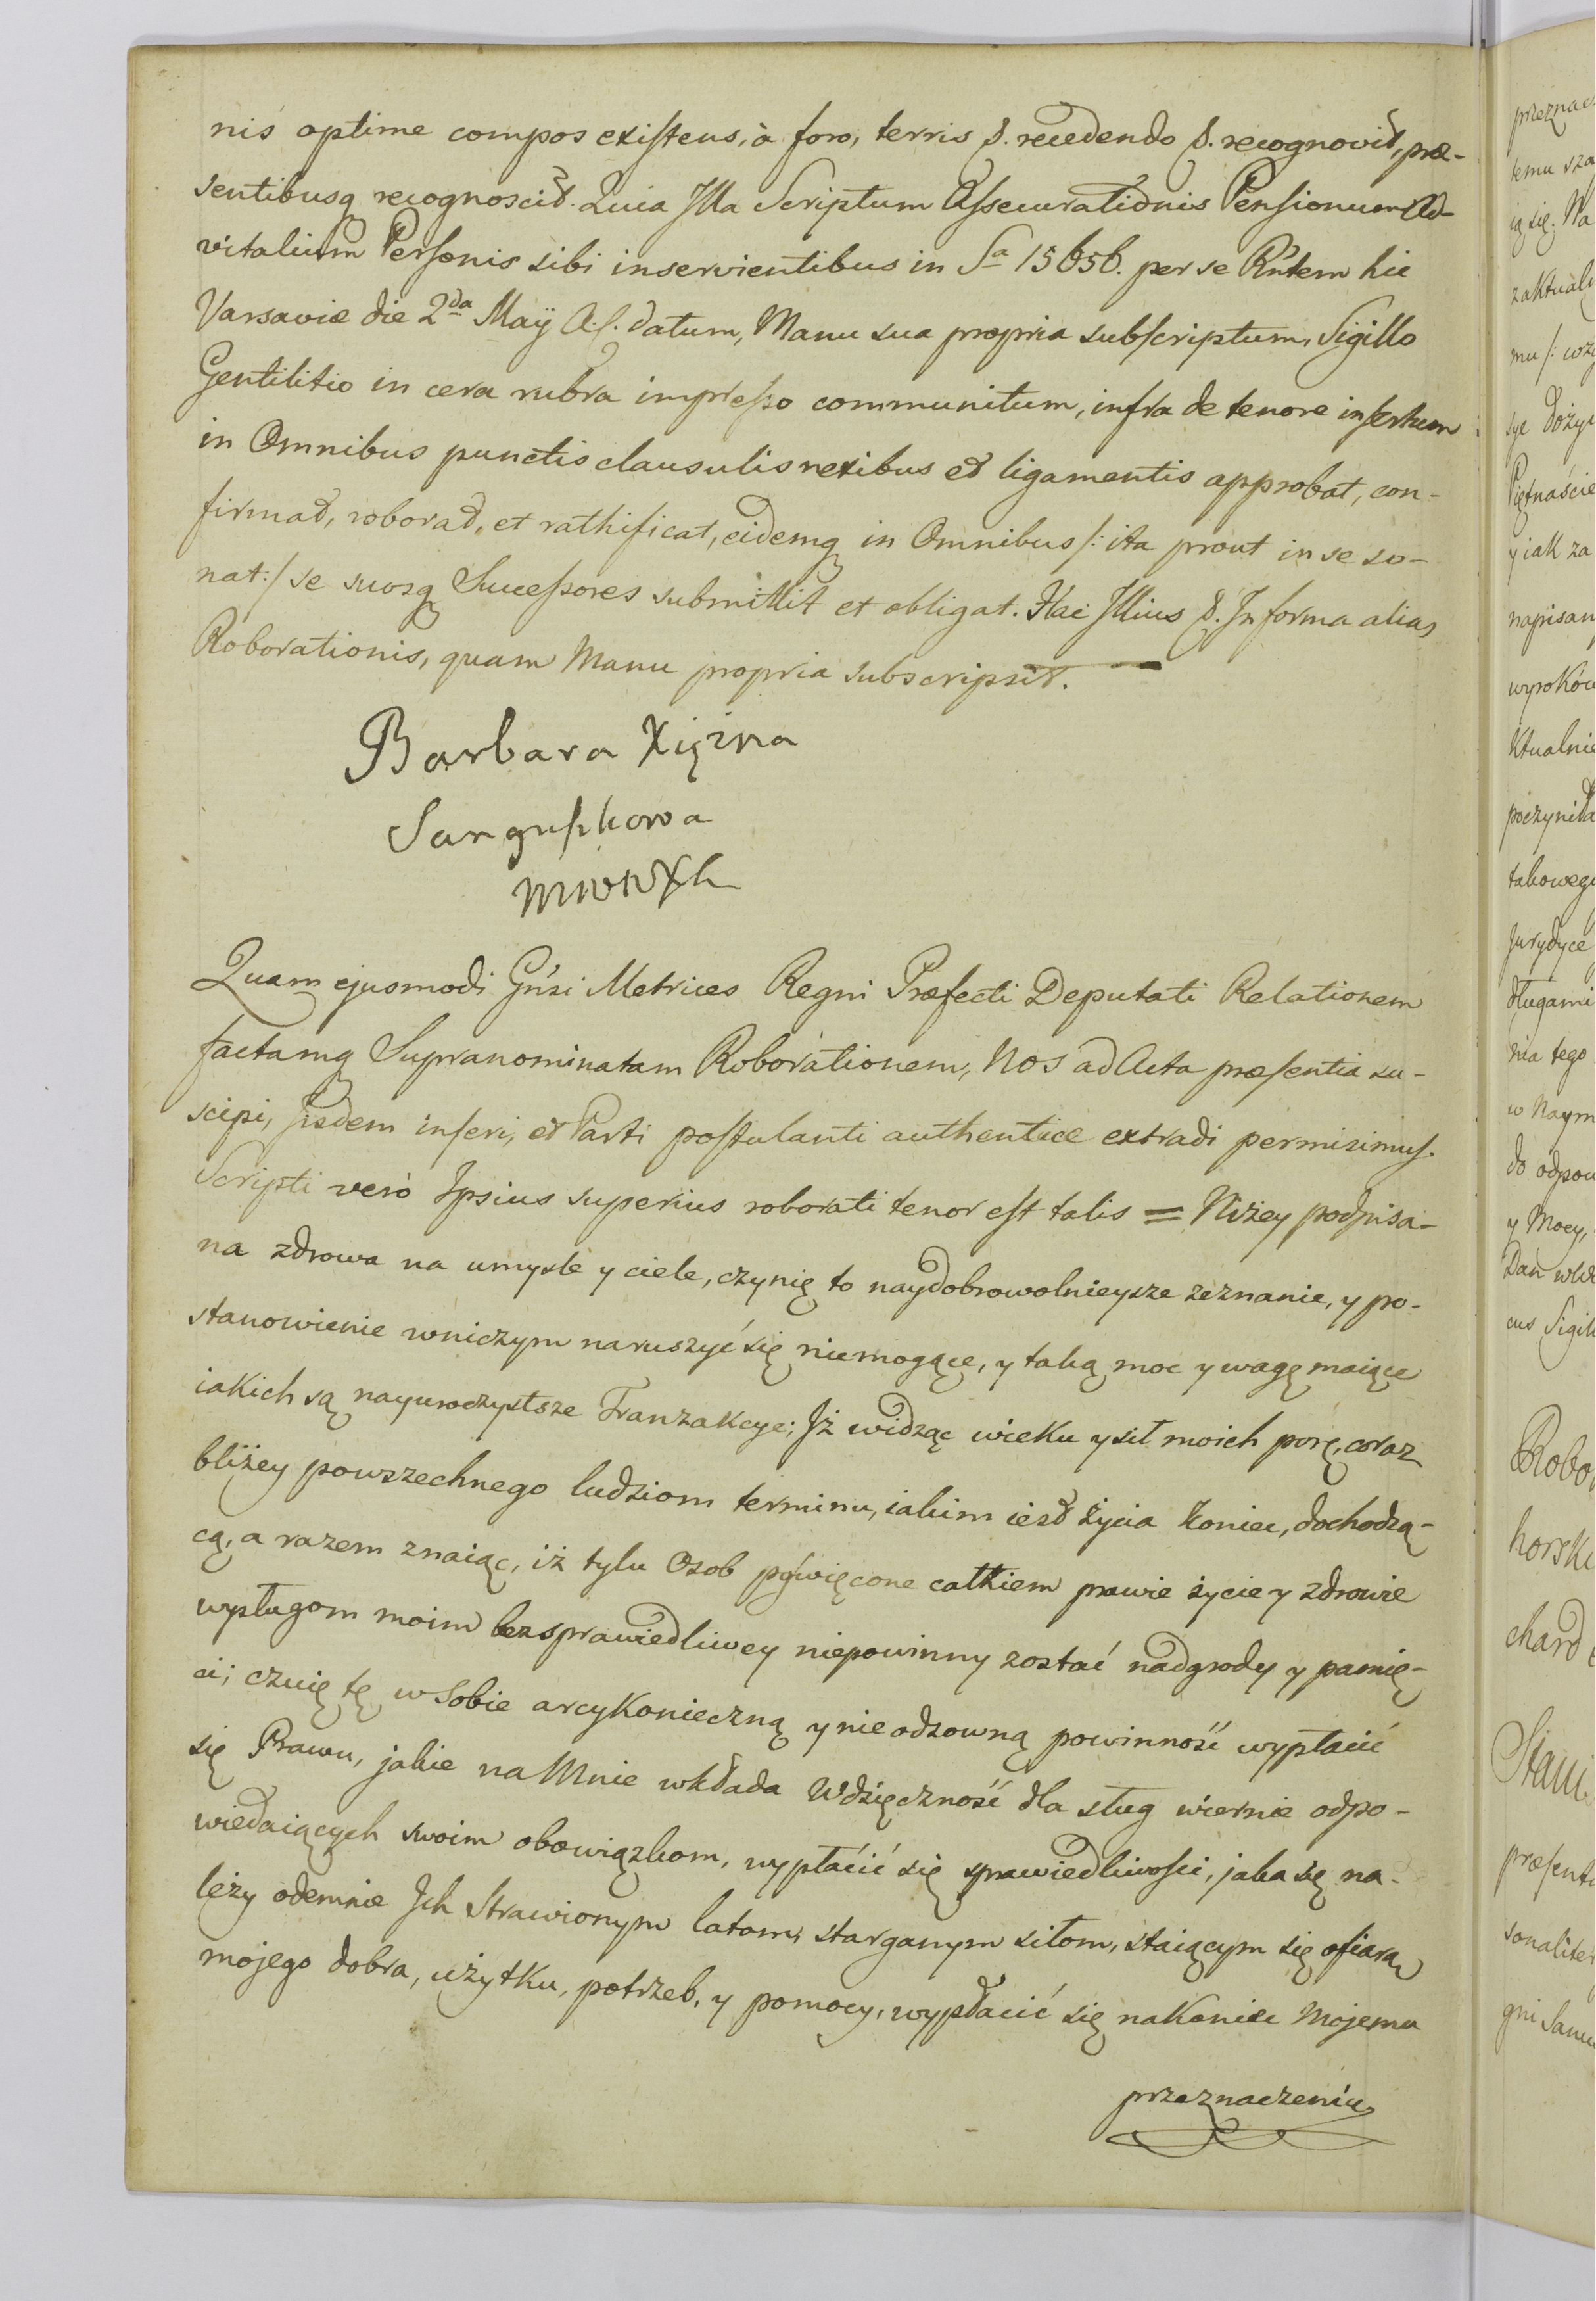 nis optime compos existens, à foro, terris &. recedendo &. recognovit, præ-
sentibusq recognoscit. Quia Illa Scriptum Assecurationis Pensionum Ad-
vitalium Personis sibi inservientibus in Sa 15656. per se Rñtem hic
Varsaviæ die 2da Maÿ A. C. datum, Manu sua propria subscriptum, Sigillo
Gentilitio in cera rubra impresso communitum, infra de tenore insertum
in Omnibus punctis clausulis nexibus et ligamentis approbat, con-
firmat, roborat, et rathificat, eidemq in Omnibus /: ita prout in se so-
nat :/ se suosq Successores submittit et obligat. Hac Illius &. In forma alias
Roborationis, quam Manu propria subscripsit. —
Barbara Xiężna
Sanguszkowa
MWWXL
Quam ejusmodi Gñsi Metrices Regni Præfecti Deputati Relationem
factamq Supranominatam Roborationem, Nos ad Acta præsentia su-
scipi, Iisdem inseri, et Parti postulanti authentice extradi permisimus.
Scripti verò Ipsius superius roborati tenor est talis = Niżey podpisa-
na zdrowa na umysle y ciele, czynię to naydobrowolnieysze zeznanie, y po-
stanowienie wniczym naruszyć się niemogące, y taką moc y wagę maiące
iakich są nayuroczystsze Tranzakcye; Iż widząc wieku y sił moich porę, coraz
bliżey powszechnego ludziom terminu, iakim iest życia koniec, dochodzą-
cą, a razem znaiąc, iż tylu Osob poświęcone całkiem prawie życie y zdrowie
wysługom moim bez sprawiedliwey niepowinny zostać nadgrody y pamię-
ci; czuię tę w Sobie arcykonieczną y nie odzowną powinność wypłacić
się Prawu, jakie na Mnie wkłada Wdzięczność dla sług wiernie odpo-
wiedaiących swoim obowiązkom, wypłacić się sprawiedliwości, jaka się na-
leży odemnie Ich Strawionym latom, starganym siłom, staiącym się ofiarą
mojego dobra, użytku, potrzeb, y pomocy, wypłacić się nakoniec Mojemu
przeznaczeniu